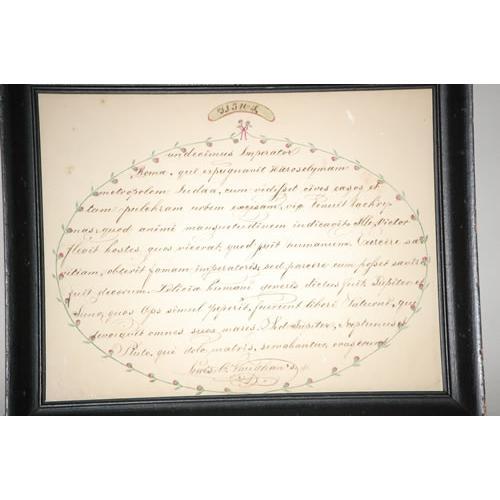 undecimus Imperator
Roma, qui expugnavit Hierosolymam
metropolem Judaa, cum vidisset cives casos et
tam pulchram urbem excisam, vix tenuit lachry-
mas, quod animi mansuetudinem indicavit. Ille Victor
flevit hostes, quos vicerat, quod fuit humanum. Exercere sa
vitiam, obscurit famam imperatoris; sed parcere cum posset savire
fuit decorum. Delicia humani generis dictus fuit. Jupiter et
Juno, quos Ops simul peperit, fuerunt liberi Saturni, qui
devoravit omnes suos mares. Sed Jupiter, Neptunus
Pluto, qui dolo matris, servabantur, evaserunt
Vaughan's